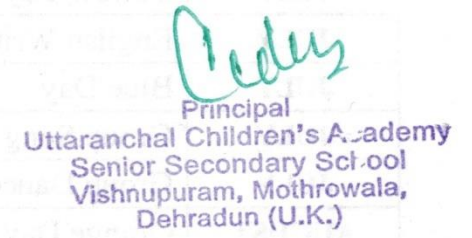 Principal
Uttaranchal Children's Academy
Senior Secondary School
Vishnupuram, Mothrowala,
Dehradun (U.K.)